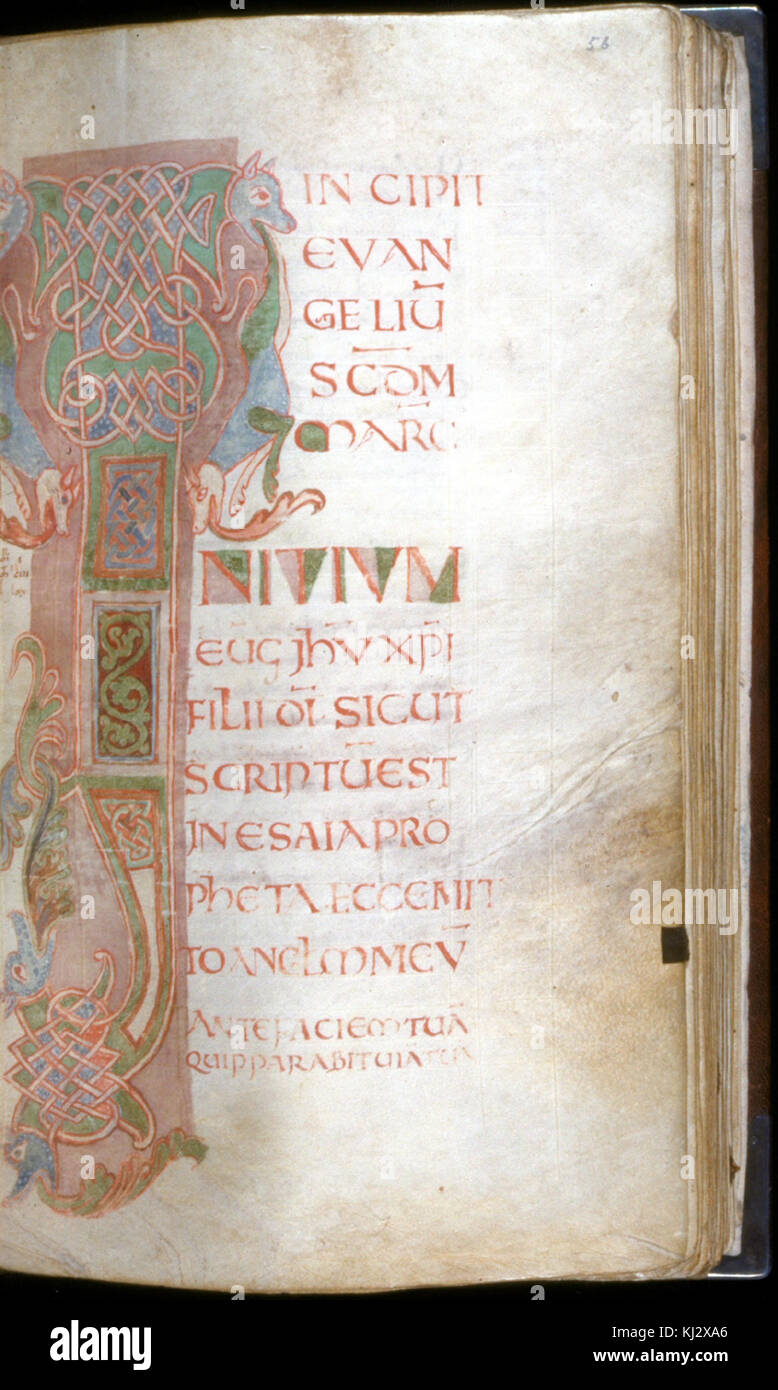 56
IN CIPIT
EVAN
GELIŪ
SCD̄M
MARC̄
NITIUM
EŪG JHŪ XP̄I
FILII DĪ SICUT
SCRIPTŪ EST
IN ESAIA PRO
PHETA ECCE MIT
TO ANGLM MEŪ
ANTE FACIEM TUĀ
QUI PPARABIT UIĀ TUĀ
a
alamy
alamy
a
a
alamy
Image ID: KJ2XA6
www.alamy.com